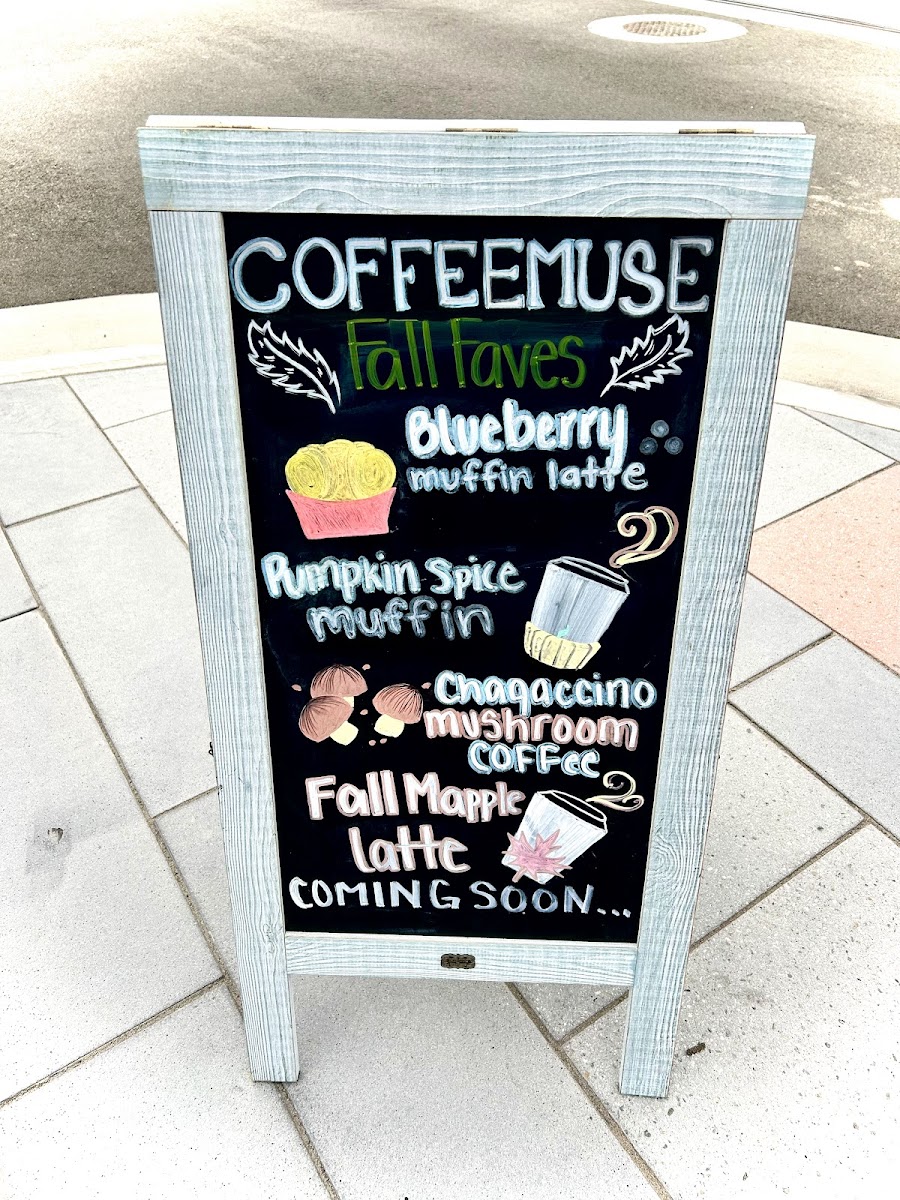 COFFEEMUSE
Fall Faves
Blueberry
muffin latte
Pumpkin Spice
muffin
Chagaccino
mushroom
COFFee
Fall Mapple
latte
COMING SOON...